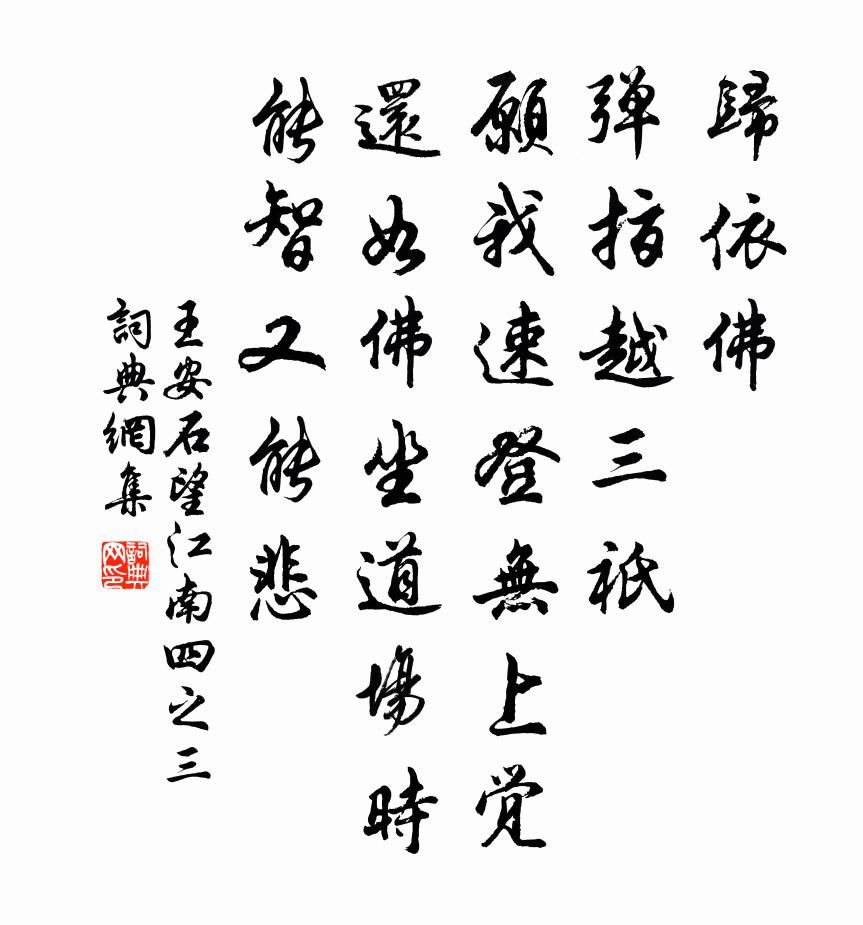 歸依佛
弹指越三祇
願我速登無上觉
還如佛坐道場時
能智又能悲
王安石望江南四之三
詞典網集
詞典网印